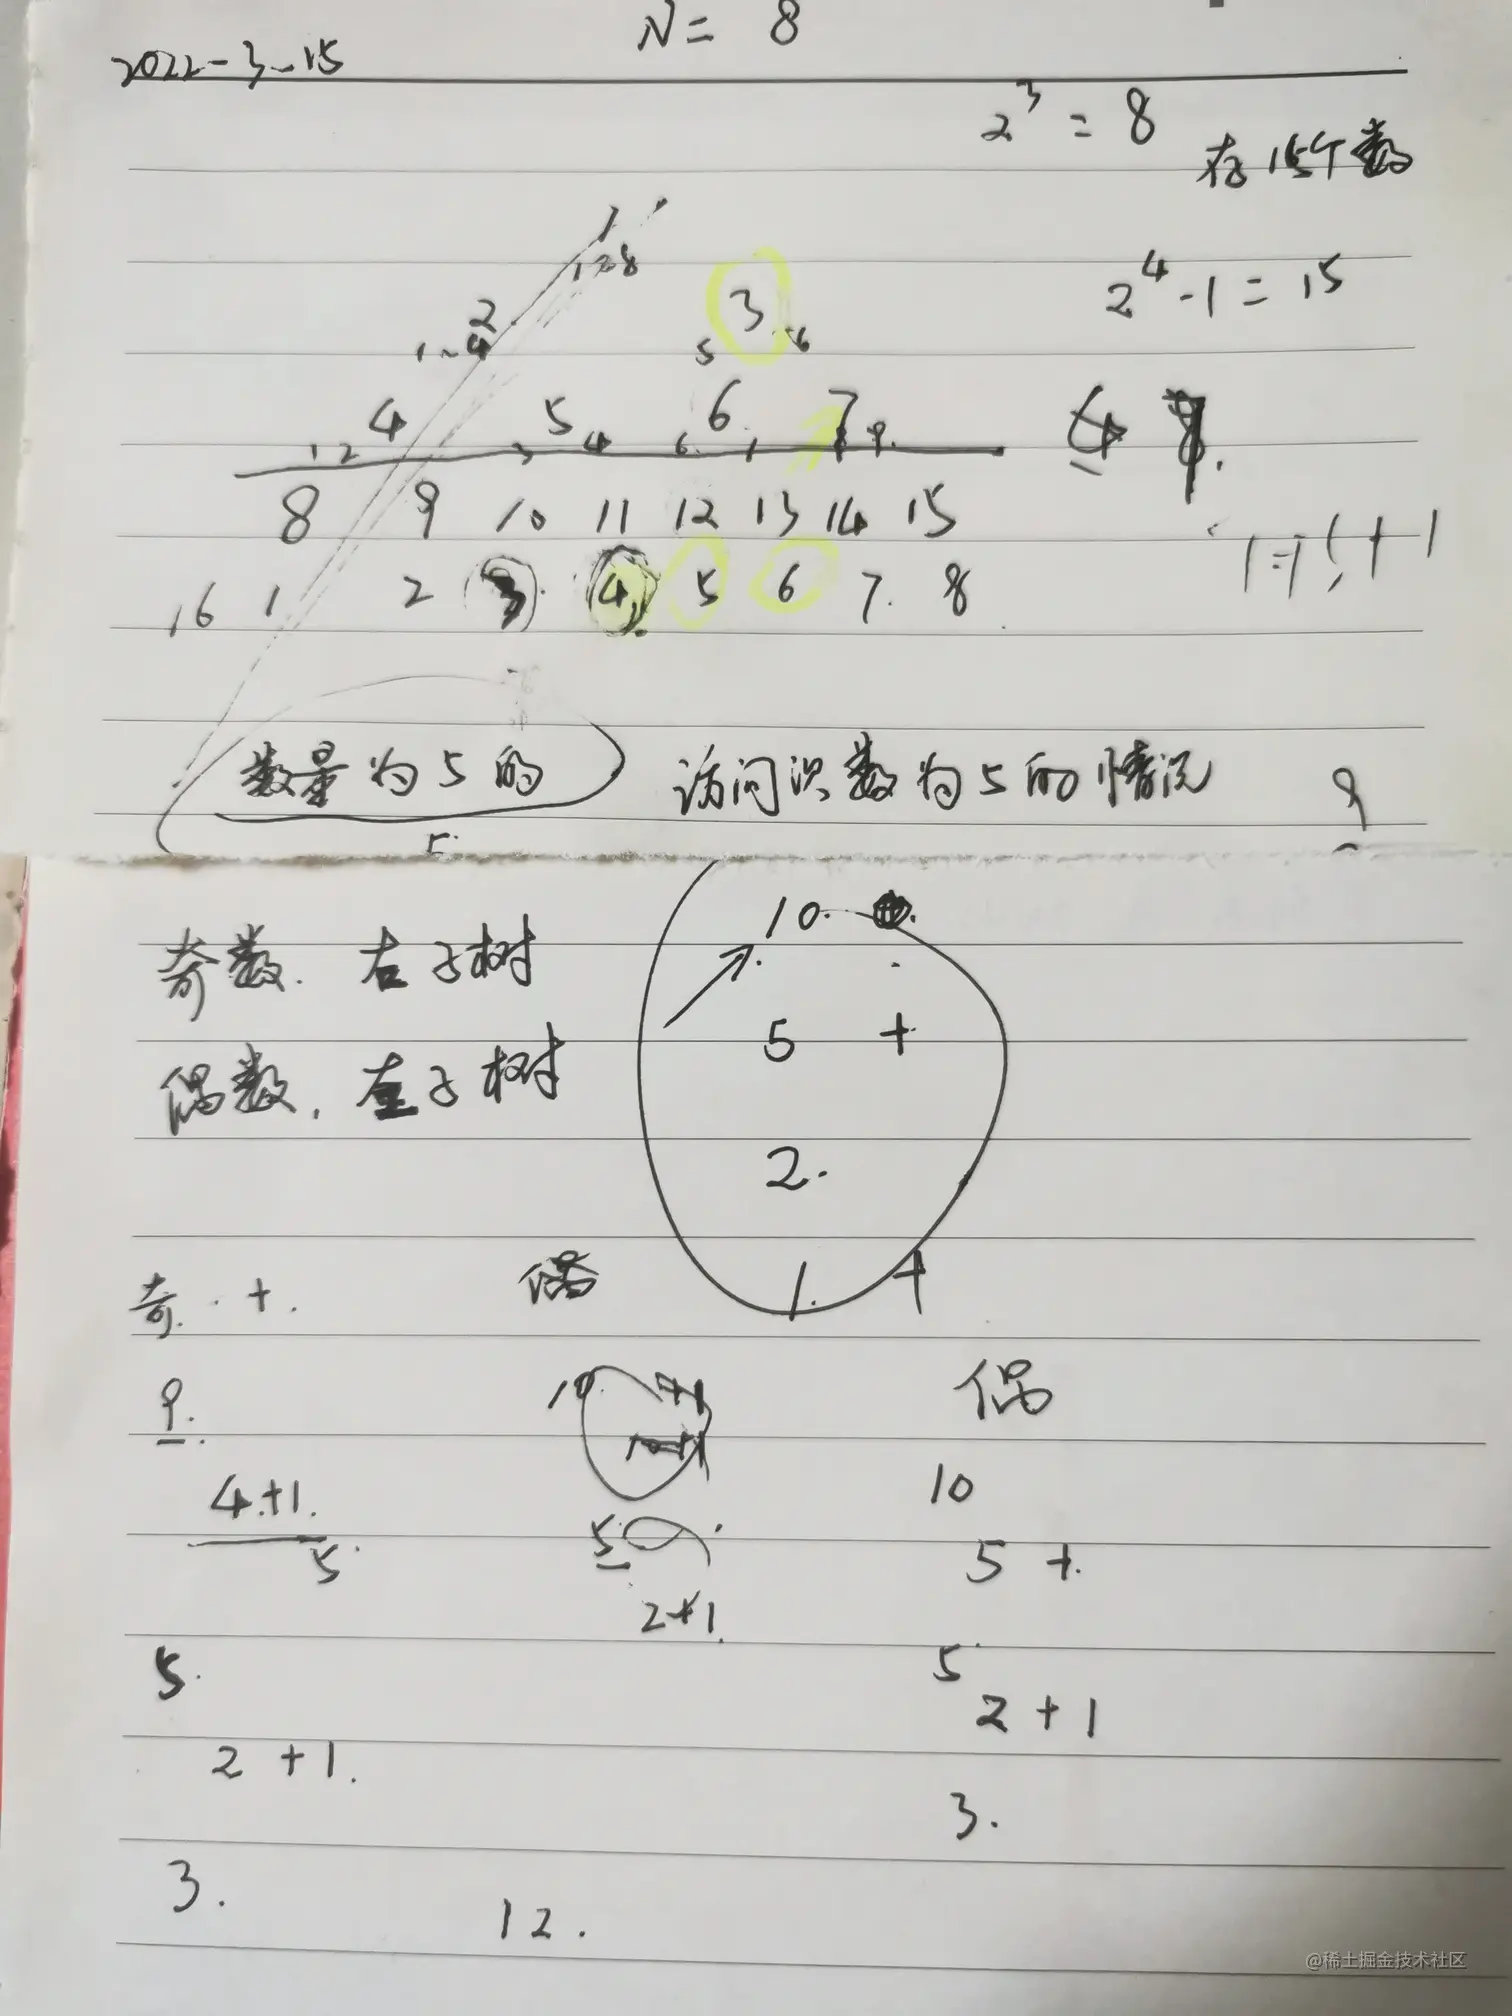 N = 8
2022-3-15
2³ = 8
存15个数
1
1-8
2⁴-1 = 15
2
3
1~4
5 6
4 5 6 7
1 2 3 4
8 9 10 11 12 13 14 15
16 1 2 3 4 5 6 7. 8
数量为5的 访问次数为5的情况
5
10.
奇数. 右子树
5 +
偶数, 左子树
2.
奇. + 偶 1. +
9. 10 偶
4+1. 10
5 5 5 +.
2+1.
5. 5
2 + 1
2 + 1.
3.
3. 12.
@稀土掘金技术社区